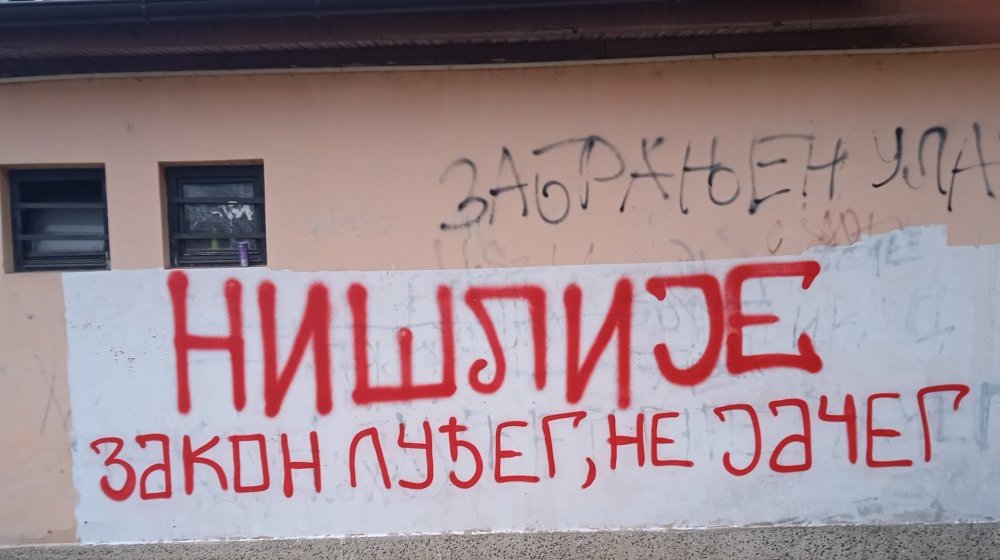 ЗАБРАЊЕН УЛА
НИШЛИЈЕ
ЗАКОН ЛУЂЕГ, НЕ ЈАЧЕГ